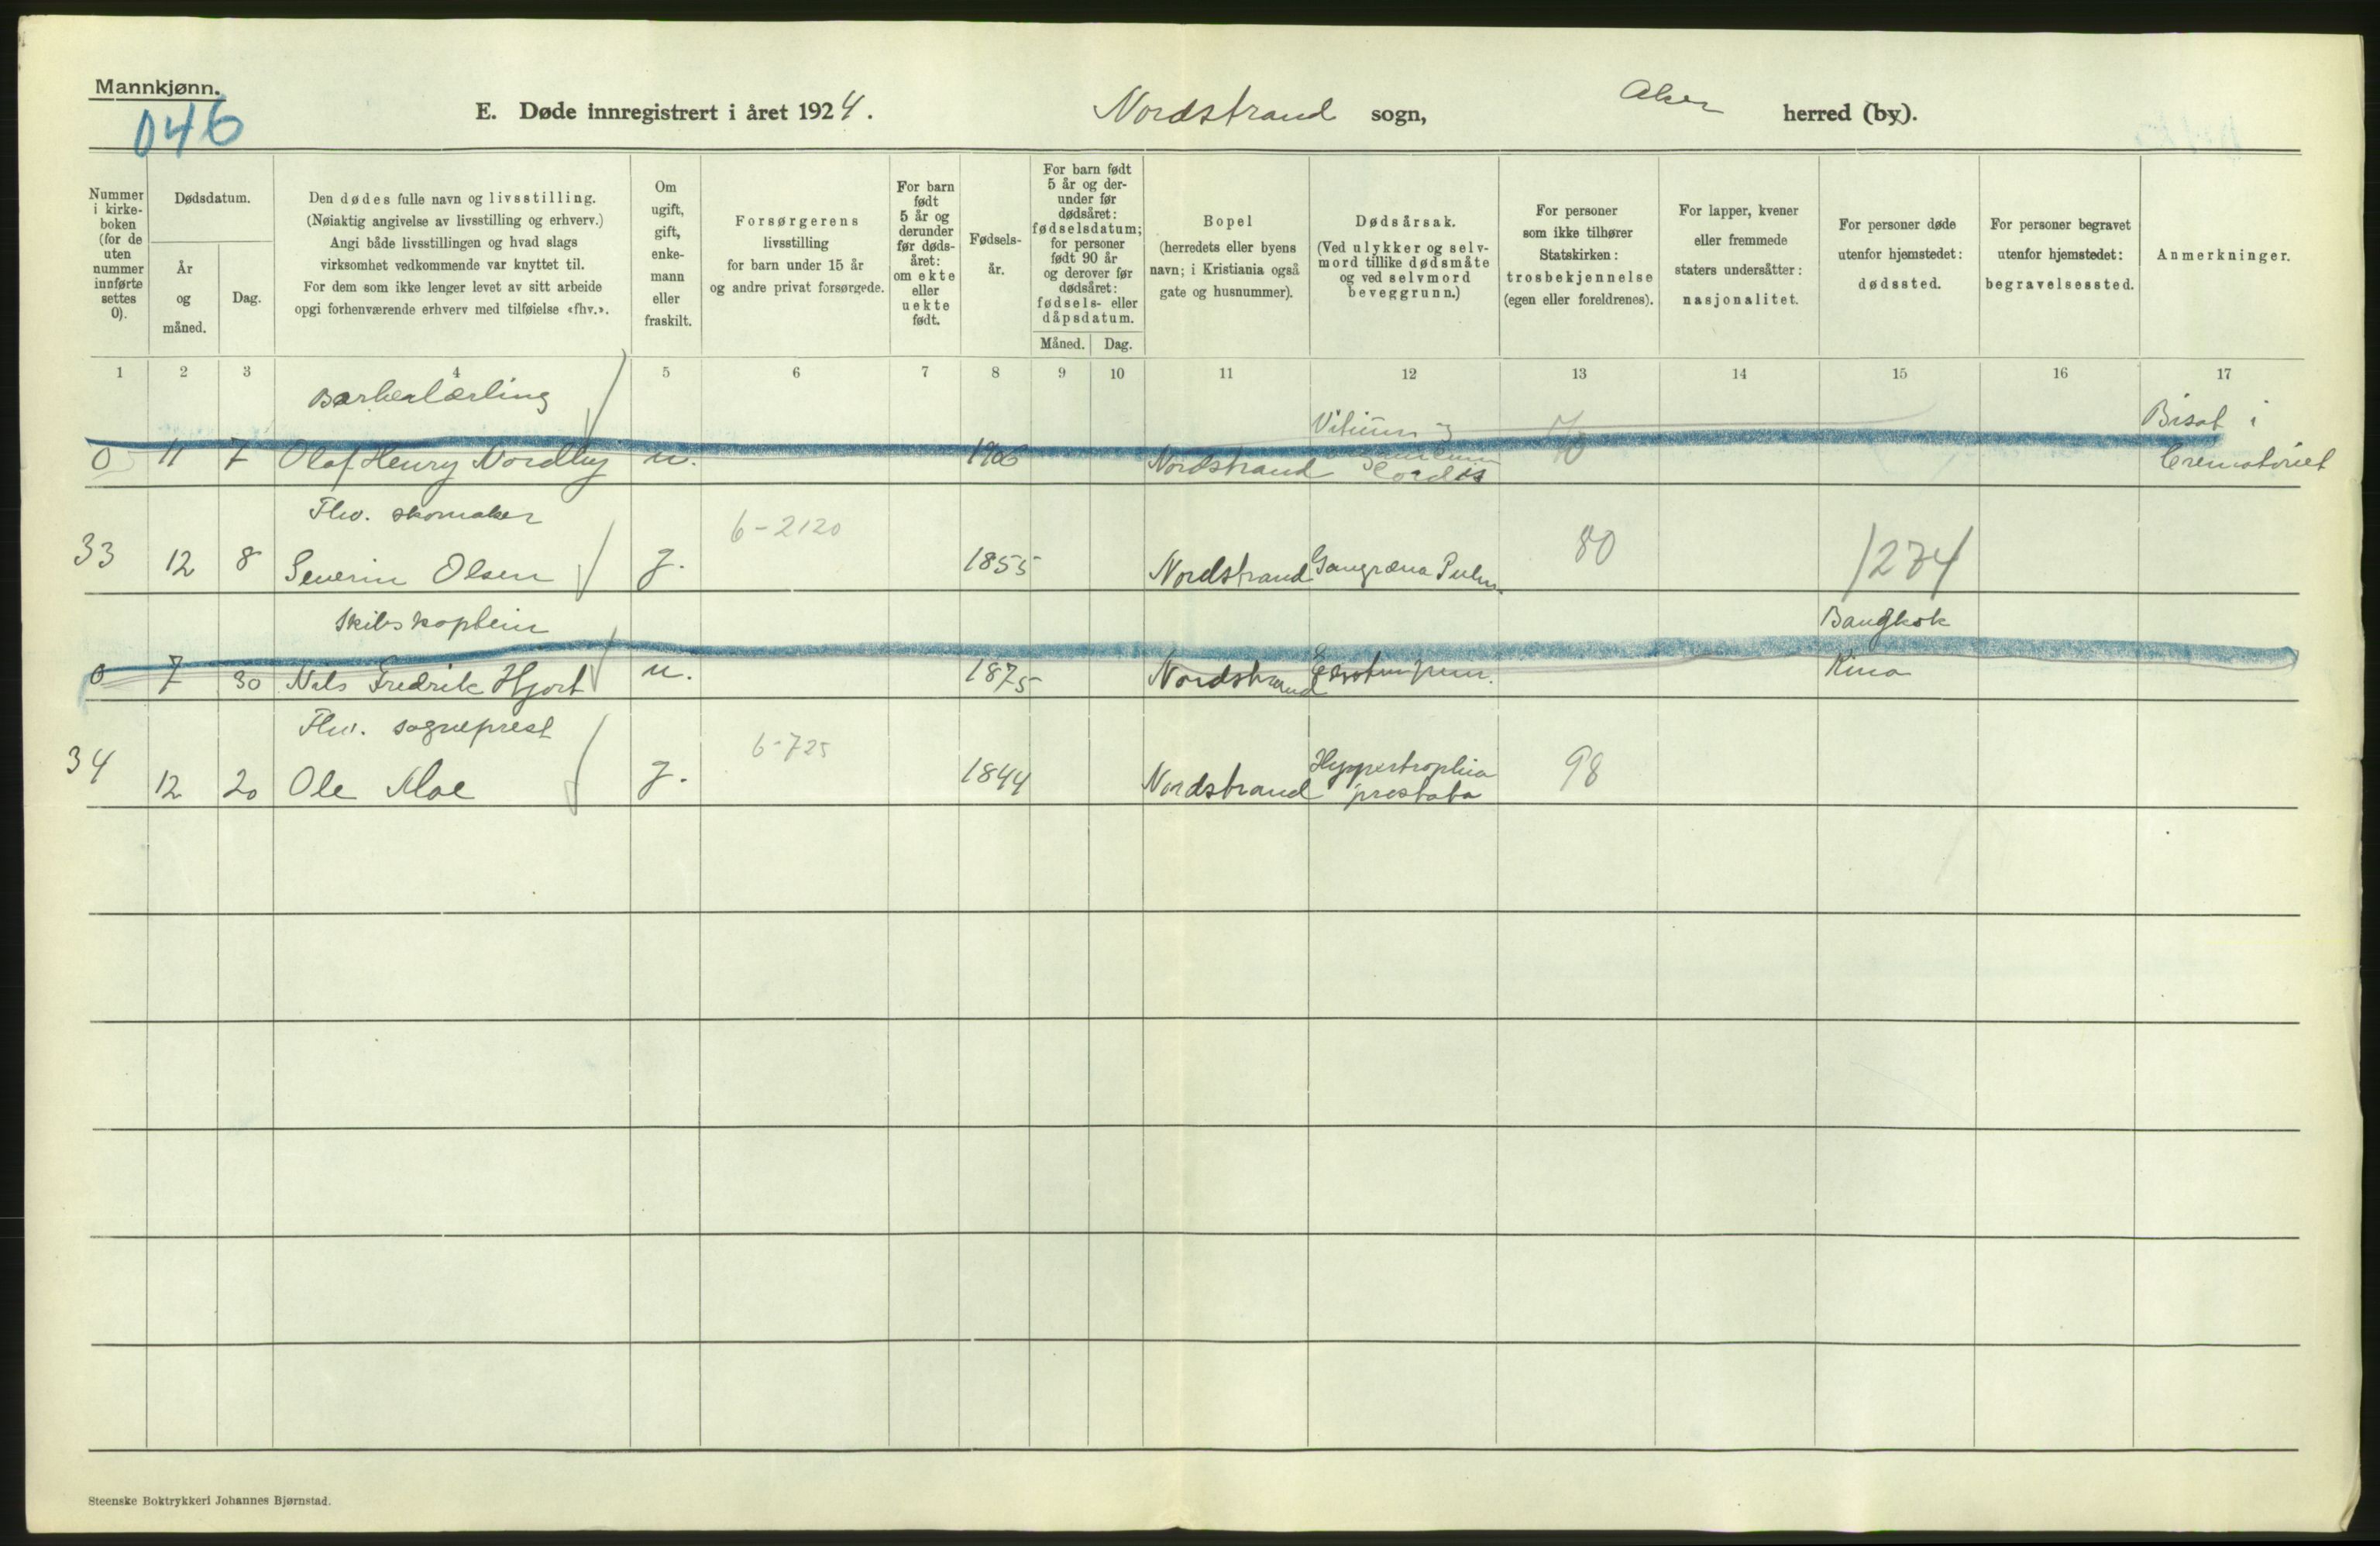 Mannkjønn.
046
E. Døde innregistrert i året 1924.
Nordstrand sogn,
Aker herred (by).
Nummer i kirke-boken (for de uten nummer innførte settes 0).
Dødsdatum.
År og måned.
Dag.
Den dødes fulle navn og livsstilling.
(Nøiaktig angivelse av livsstilling og erhverv.)
Angi både livsstillingen og hvad slags
virksomhet vedkommende var knyttet til.
For dem som ikke lenger levet av sitt arbeide
opgi forhenværende erhverv med tilføielse «fhv.».
Om ugift, gift, enke-mann eller fraskilt.
Forsørgerens
livsstilling
for barn under 15 år
og andre privat forsørgede.
For barn født 5 år og derunder før døds-året: om ekte eller uekte født.
Fødsels-år.
For barn født 5 år og der-under før dødsåret: fødselsdatum; for personer født 90 år og derover før dødsåret: fødsels- eller dåpsdatum.
Måned.
Dag.
Bopel
(herredets eller byens
navn; i Kristiania også
gate og husnummer).
Dødsårsak.
(Ved ulykker og selv-
mord tillike dødsmåte
og ved selvmord
beveggrunn.)
For personer
som ikke tilhører
Statskirken:
trosbekjennelse
(egen eller foreldrenes).
For lapper, kvener
eller fremmede
staters undersåtter:
nasjonalitet.
For personer døde
utenfor hjemstedet:
dødssted.
For personer begravet
utenfor hjemstedet:
begravelsessted.
Anmerkninger.
1 2 3 4 5 6 7 8 9 10 11 12 13 14 15 16 17
Barberlærling
Vitium
70
Bisat i
0 11 7 Olaf Henry Nordby u. 1906 Nordstrand Cordis Crematoriet
Fhv. skomaker
6-2120
80
33 12 8 Severin Olsen g. 1855 Nordstrand Gangræna Pulm. 1274
Skibskaptein
Bangkok
0 7 30 Nils Fredrik Hjort u. 1875 Nordstrand Kina
Fhv. sogneprest
6-725
34 12 20 Ole Moe g. 1844 Nordstrand Hyppertrophia prostata 98
Steenske Boktrykkeri Johannes Bjørnstad.